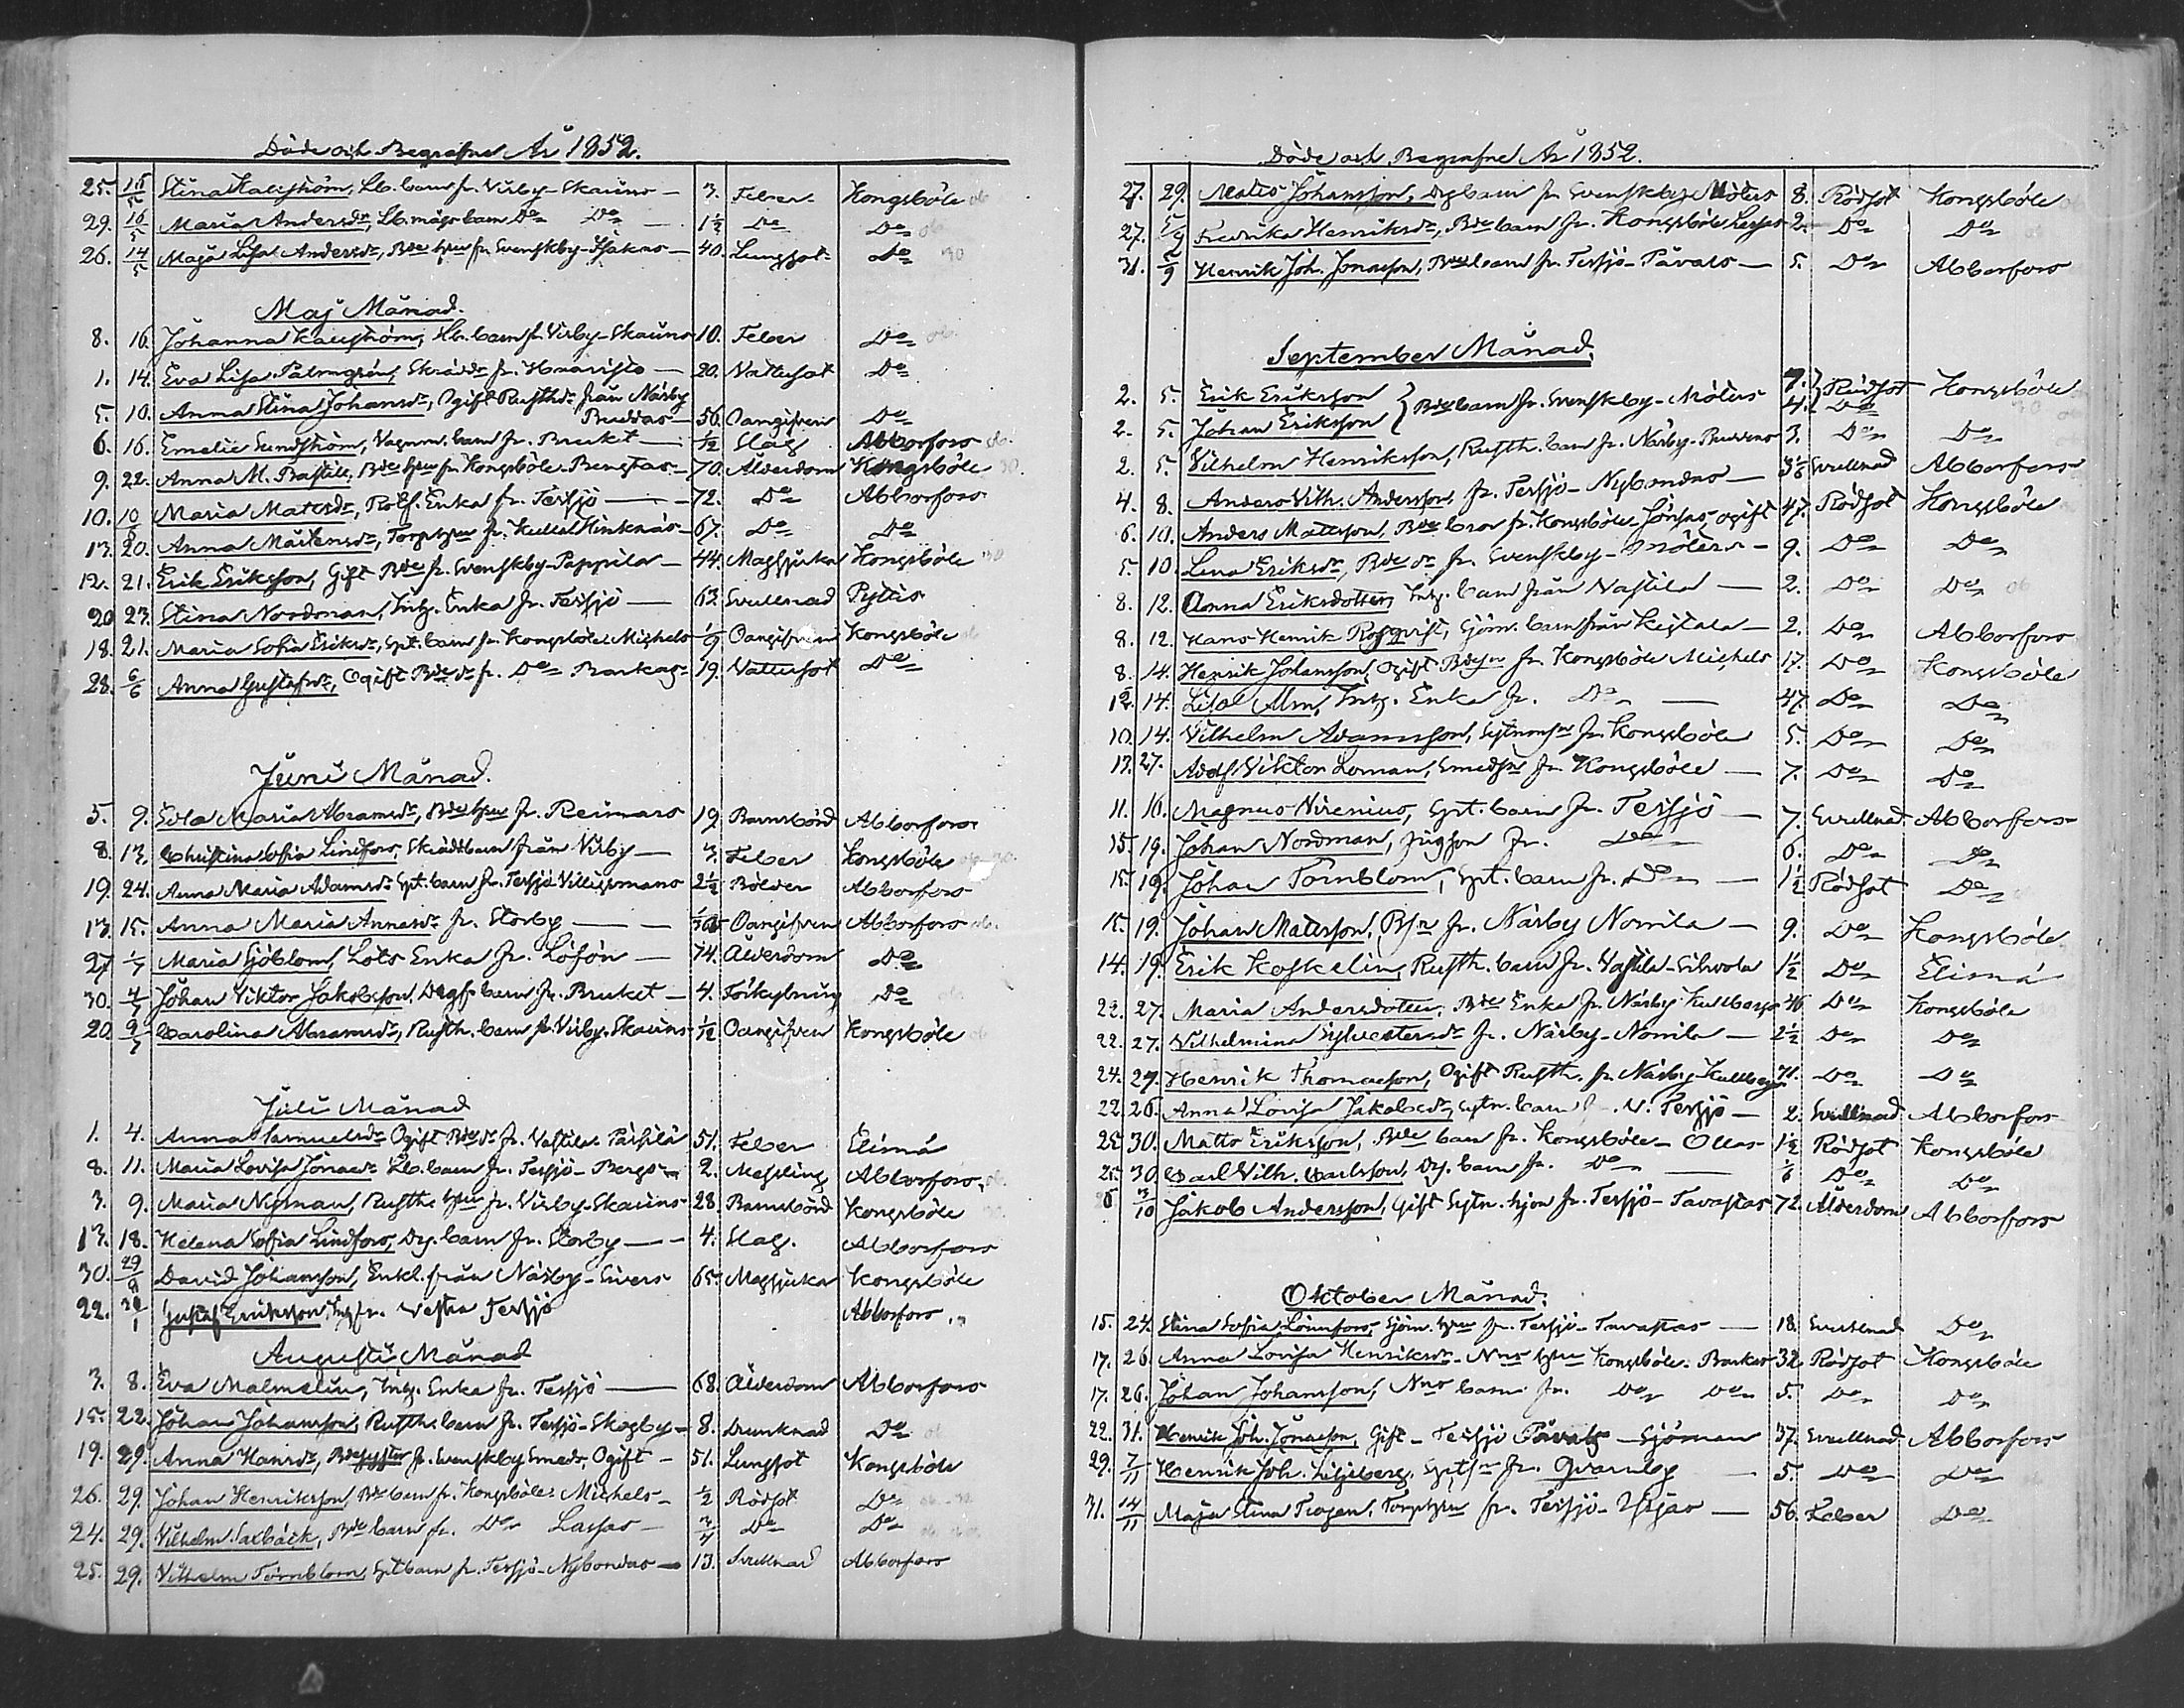 Döde och Begrafne År 1852.
25. 15/5 Stina Kallström, Lb. barn fr. Virby-Skauns — 3. Feber Kongsböle
29. 16/5 Maria Andersdr, Lb. mågs barn Do Do — 1½ Do Do
26. 14/5 Maja Lisa Andersdr, Bde hru fr. Svenskby- — 40. Lungsot Do
Maj Månad.
8. 16. Johanna Kallström, Lb. barn fr. Virby-Skauns 10. Feber Do
1. 14. Eva Lisa Palmgrén, Skrädd. fr. Haavisto — 20. Vattusot Do
5. 10. Anna Stina Johansdr, Ogift Rusthdr från Närby
Buddas — 56. Oangifven Do
6. 16. Emelie Sundström, Vagnm. barn fr. Bruket — 1/12 Slag Abborfors
9. 22. Anna M. Bastill, Bde hru fr. Kongsböle-Bengtas — 70. Ålderdom Kongsböle
10. 10/6 Maria Matsdr, Rotf. Enka fr. Tessjö — 72. Do Abborfors
13. 20. Anna Mårtensdr, Torphru fr. Kulla — 67. Do Do
12. 21. Erik Eriksson, Gift Bde fr. Svenskby-Pappila — 44. Magsjuka Kongsböle
20 23. Stina Nordman, Inhs. Enka fr. Tessjö — 63. Svullnad Pyttis
18. 21. Maria Sofia Eriksdr, Spt. barn fr. Kongsböle Michels Oangifven Kongsböle
28. 6/6 Anna Gustafsdr, Ogift Bde dr fr. Do Barkas — 19. Vattusot Do
Juni Månad.
5. 9. Edla Maria Abramsdr, Bde hru fr. Reimars 19 Barnsbörd Abborfors
8. 13. Christina Sofia Lindfors, Skräddbarn från Virby — Feber Kongsböle
19. 24. Anna Maria Adamsdr Spt. barn fr. Tessjö 2½ Bölder Abborfors
13. 15. Anna Maria Annasdr fr. Storby — Oangifven Abborfors
27 1/7 Maria Sjöblom, Lots Enka fr. Löfön — 74. Ålderdom Do
30. 4/7 Johan Viktor Jakobsson, barn fr. Bruket — 4. Förkylning Do
20. Carolina Abramsdr, Rusth. barn fr. Virby-Skauns 1/12 Oangifven Kongsböle
Juli Månad
1. 4. Anna Samuelsdr Ogift Bde dr fr. Vastila 51. Feber Elimä
8. 11. Maria Lovisa Jonasdr Lb. barn fr. Tessjö- 2. Messling Abborfors
3. 9. Maria Nyman, Rusth. hru fr. Virby-Skauns 28. Barnsbörd Kongsböle
13. 18. Helena Sofia Lindfors, Drg. barn fr. Storby — 4. Slag. Abborfors
30. David Johansson, Enkl. från Närby-Sivers 65. Magsjuka Kongsböle
22. Gustaf Eriksson, Inh. fr. Vestra Tessjö Abborfors
Augusti Månad
3. 8. Eva Malmelin, Inhs. Enka fr. Tessjö — 68. Ålderdom Abborfors
15. 22. Johan Johansson, Rusth. barn fr. Tessjö-Skogby — 8. Drunknad Do
19. 29. Anna Hansdr, Bde syster fr. Svenskby Smeds, Ogift — 51. Lungsot Kongsböle
26. 29. Johan Henriksson, Bde barn fr. Kongsböle-Michels — ½ Rödsot Do
24. 29. Vilhelm Saxbäck, Bde barn fr. Do Lassas — ¾ Do Do
25. 29. Vilhelm Törnblom, Spt barn fr. Tessjö-Nybondas — 13. Svullnad Abborfors
Döde och Begrafne År 1852.
27. 29. Matts Johansson, Drg barn fr. Svenskby Mölers 8. Rödsot Kongsböle
27. 5/9 Fredrika Henriksdr, Bde barn fr. Kongsböle Lassas 2. Do Do
31. 5/9 Henrik Joh. Jonasson, Bde barn fr. Tessjö-Påvals — 5. Do Abborfors
September Månad.
2. 5. Erik Eriksson } Bde barn fr. Svenskby-Mölers 7. } Rödsot Kongsböle
2. 5. Johan Eriksson 4. Do
2. 5. Vilhelm Henriksson, Rusth. barn fr. Närby- 3. Do Do
4. 8. Anders Vilh. Andersson, fr. Tessjö-Nybondas — Svullnad Abborfors
6. 10. Anders Mattsson, Bde bror fr. Kongsböle-Jönsas, ogift 47. Rödsot Kongsböle
5. 10. Lena Eriksdr, Bde dr fr. Svenskby-Mölers — 9. Do Do
8. 12. Anna Eriksdotter, Inhs. barn från Vastila — 2. Do Do
8. 12. Hans Henrik Rosqvist, Sjöm. barn från — 2. Do Abborfors
8. 14. Henrik Johansson, Ogift Bde sn fr. Kongsböle Michels 17. Do Kongsböle
12. 14. Lisa Alm, Inhs. Enka fr. Do — 47. Do Do
10. 14. Vilhelm Adamsson, fr. Kongsböle 5. Do Do
17. 27. Adolf Viktor Loman, Smedsn fr. Kongsböle — 7. Do Do
11. 16. Magnus Nirenius, Spt. barn fr. Tessjö — 7. Svullnad Abborfors
15. 19. Johan Nordman, fr. Do 6. Do Do
15. 19. Johan Törnblom, Spt. barn fr. Do — 1½ Rödsot Do
15. 19. Johan Matsson, Bsn fr. Närby Nomila — 9. Do Kongsböle
14. 19. Erik Koskelin, Rusth. barn fr. Vastila-Sihvola 1½ Do Elimä
22. 27. Maria Andersdotter, Bde Enka fr. Närby Kullbergs 46 Do Kongsböle
22. 27. Vilhelmina Sylvestersdr fr. Närby-Nomila — 2½ Do Do
24. 27. Henrik Thomasson, Ogift Rusth. fr. Närby Kullbergs 71. Do Do
22. 26. Anna Lovisa Jakobsdr, Sytn. barn fr. V. Tessjö — 2. Svullnad Abborfors
25. 30. Matts Eriksson, Bde barn fr. Kongsböle-Ollas 1½ Rödsot Kongsböle
25. 30. Carl Vilh. Carlsson, Drg. barn fr. Do — Do Do
3/10 Jakob Andersson, Gift Sytn. hjon fr. Tessjö-Tavastas 72. Ålderdom Abborfors
Oktober Månad.
15. 24. Stina Sofia Lönnfors, Sjöm. hru fr. Tessjö-Tavastas — 18. Svullnad Do
17. 26. Anna Lovisa Henriksdr hru Kongsböle-Barkas 32. Rödsot Kongsböle
17. 26. Johan Johansson, barn fr. Do Do 5. Do Do
22. 31. Henrik Joh. Jonasson, Gift - Tessjö Påvals - Sjöman 37. Svullnad Abborfors
29. 7/11 Henrik Joh. Liljeberg, Sptsn fr. Qvarnby — 5. Do Do
31. 14/11 Maja Stina Trogen, Torphru fr. Tessjö- — 56. Feber Do